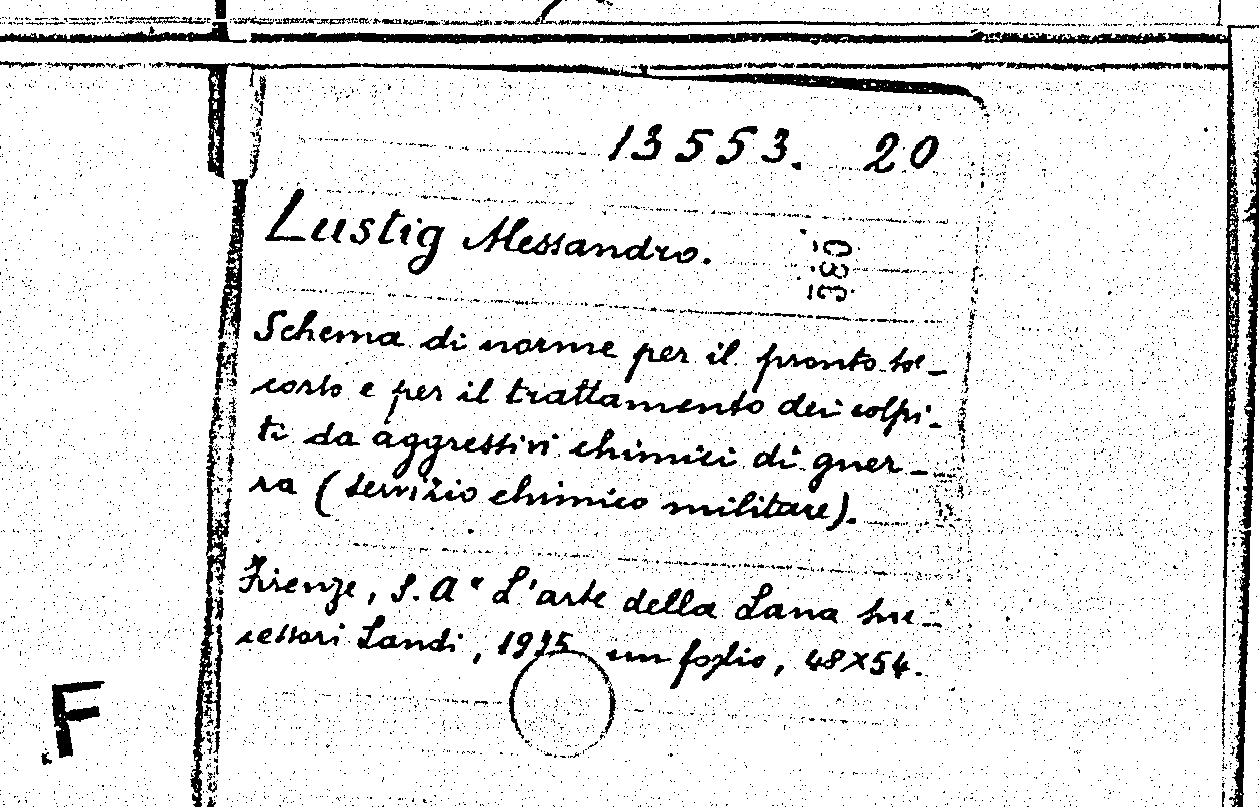 13553. 20
Lustig Alessandro.
380
Schema di norme per il pronto soc-
corso e per il trattamento dei colpi-
ti da aggressivi chimici di guer-
ra (servizio chimico militare).
Firenze, S.A. "L'arte della Lana suc-
cessori Landi, 1935 un foglio, 48X54.
F